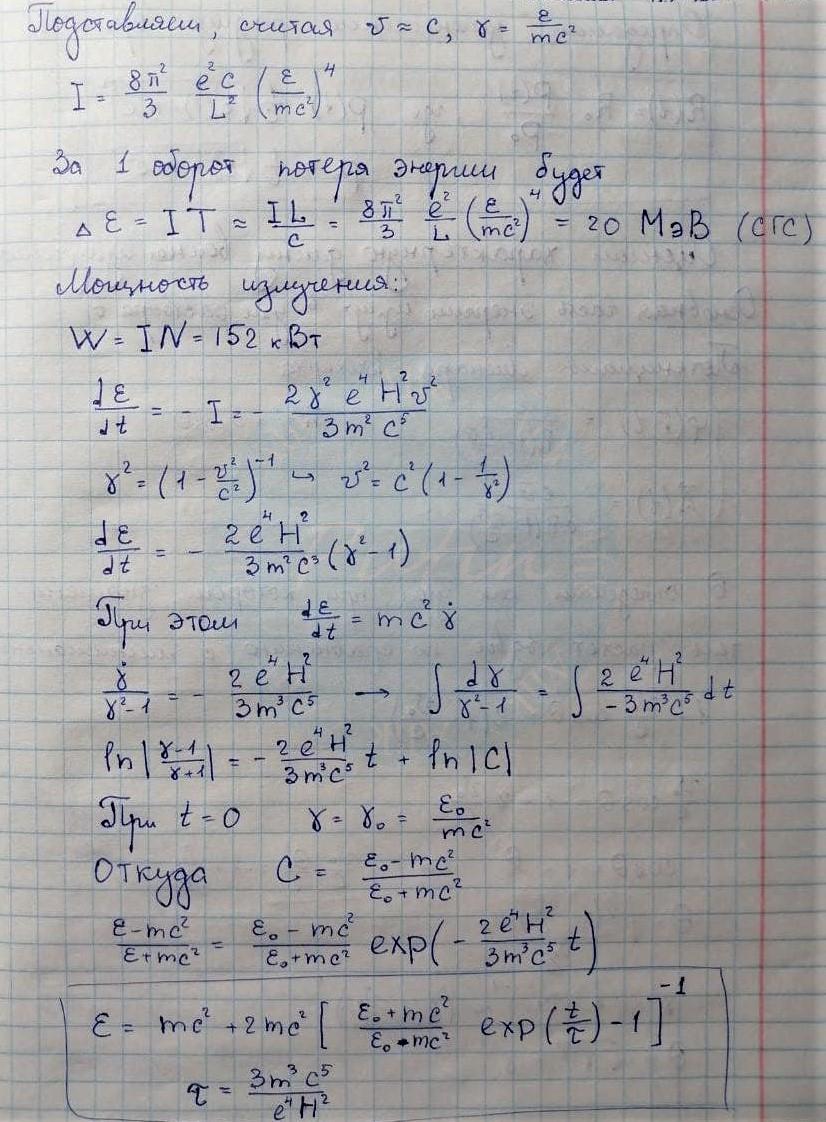 Подставляем, считая v ≈ c, γ = ε/mc²
I = 8π²/3 e²c/L² (ε/mc²)⁴
За 1 оборот потеря энергии будет
Δε = IT ≈ IL/c = 8π²/3 e²/L (ε/mc²)⁴ = 20 МэВ (СГС)
Мощность излучения:
W = IN = 152 кВт
dε/dt = - I = - 2γ² e⁴ H² v² / 3m² c⁵
γ² = (1 - v²/c²)⁻¹ ↪ v² = c² (1 - 1/γ²)
dε/dt = - 2e⁴H²/3m²c³ (γ² - 1)
При этом dε/dt = mc² γ̇
γ̇/γ²-1 = - 2e⁴H²/3m³c⁵ → ∫ dγ/γ²-1 = ∫ 2e⁴H²/-3m³c⁵ dt
ln|γ-1/γ+1| = - 2e⁴H²/3m³c⁵ t + ln|C|
При t = 0 γ = γ₀ = ε₀/mc²
Откуда C = ε₀ - mc²/ε₀ + mc²
ε - mc²/ε + mc² = ε₀ - mc²/ε₀ + mc² exp(- 2e⁴H²/3m³c⁵ t)
ε = mc² + 2mc² [ ε₀ + mc²/ε₀ - mc² exp(t/τ) - 1 ]⁻¹
τ = 3m³c⁵/e⁴H²